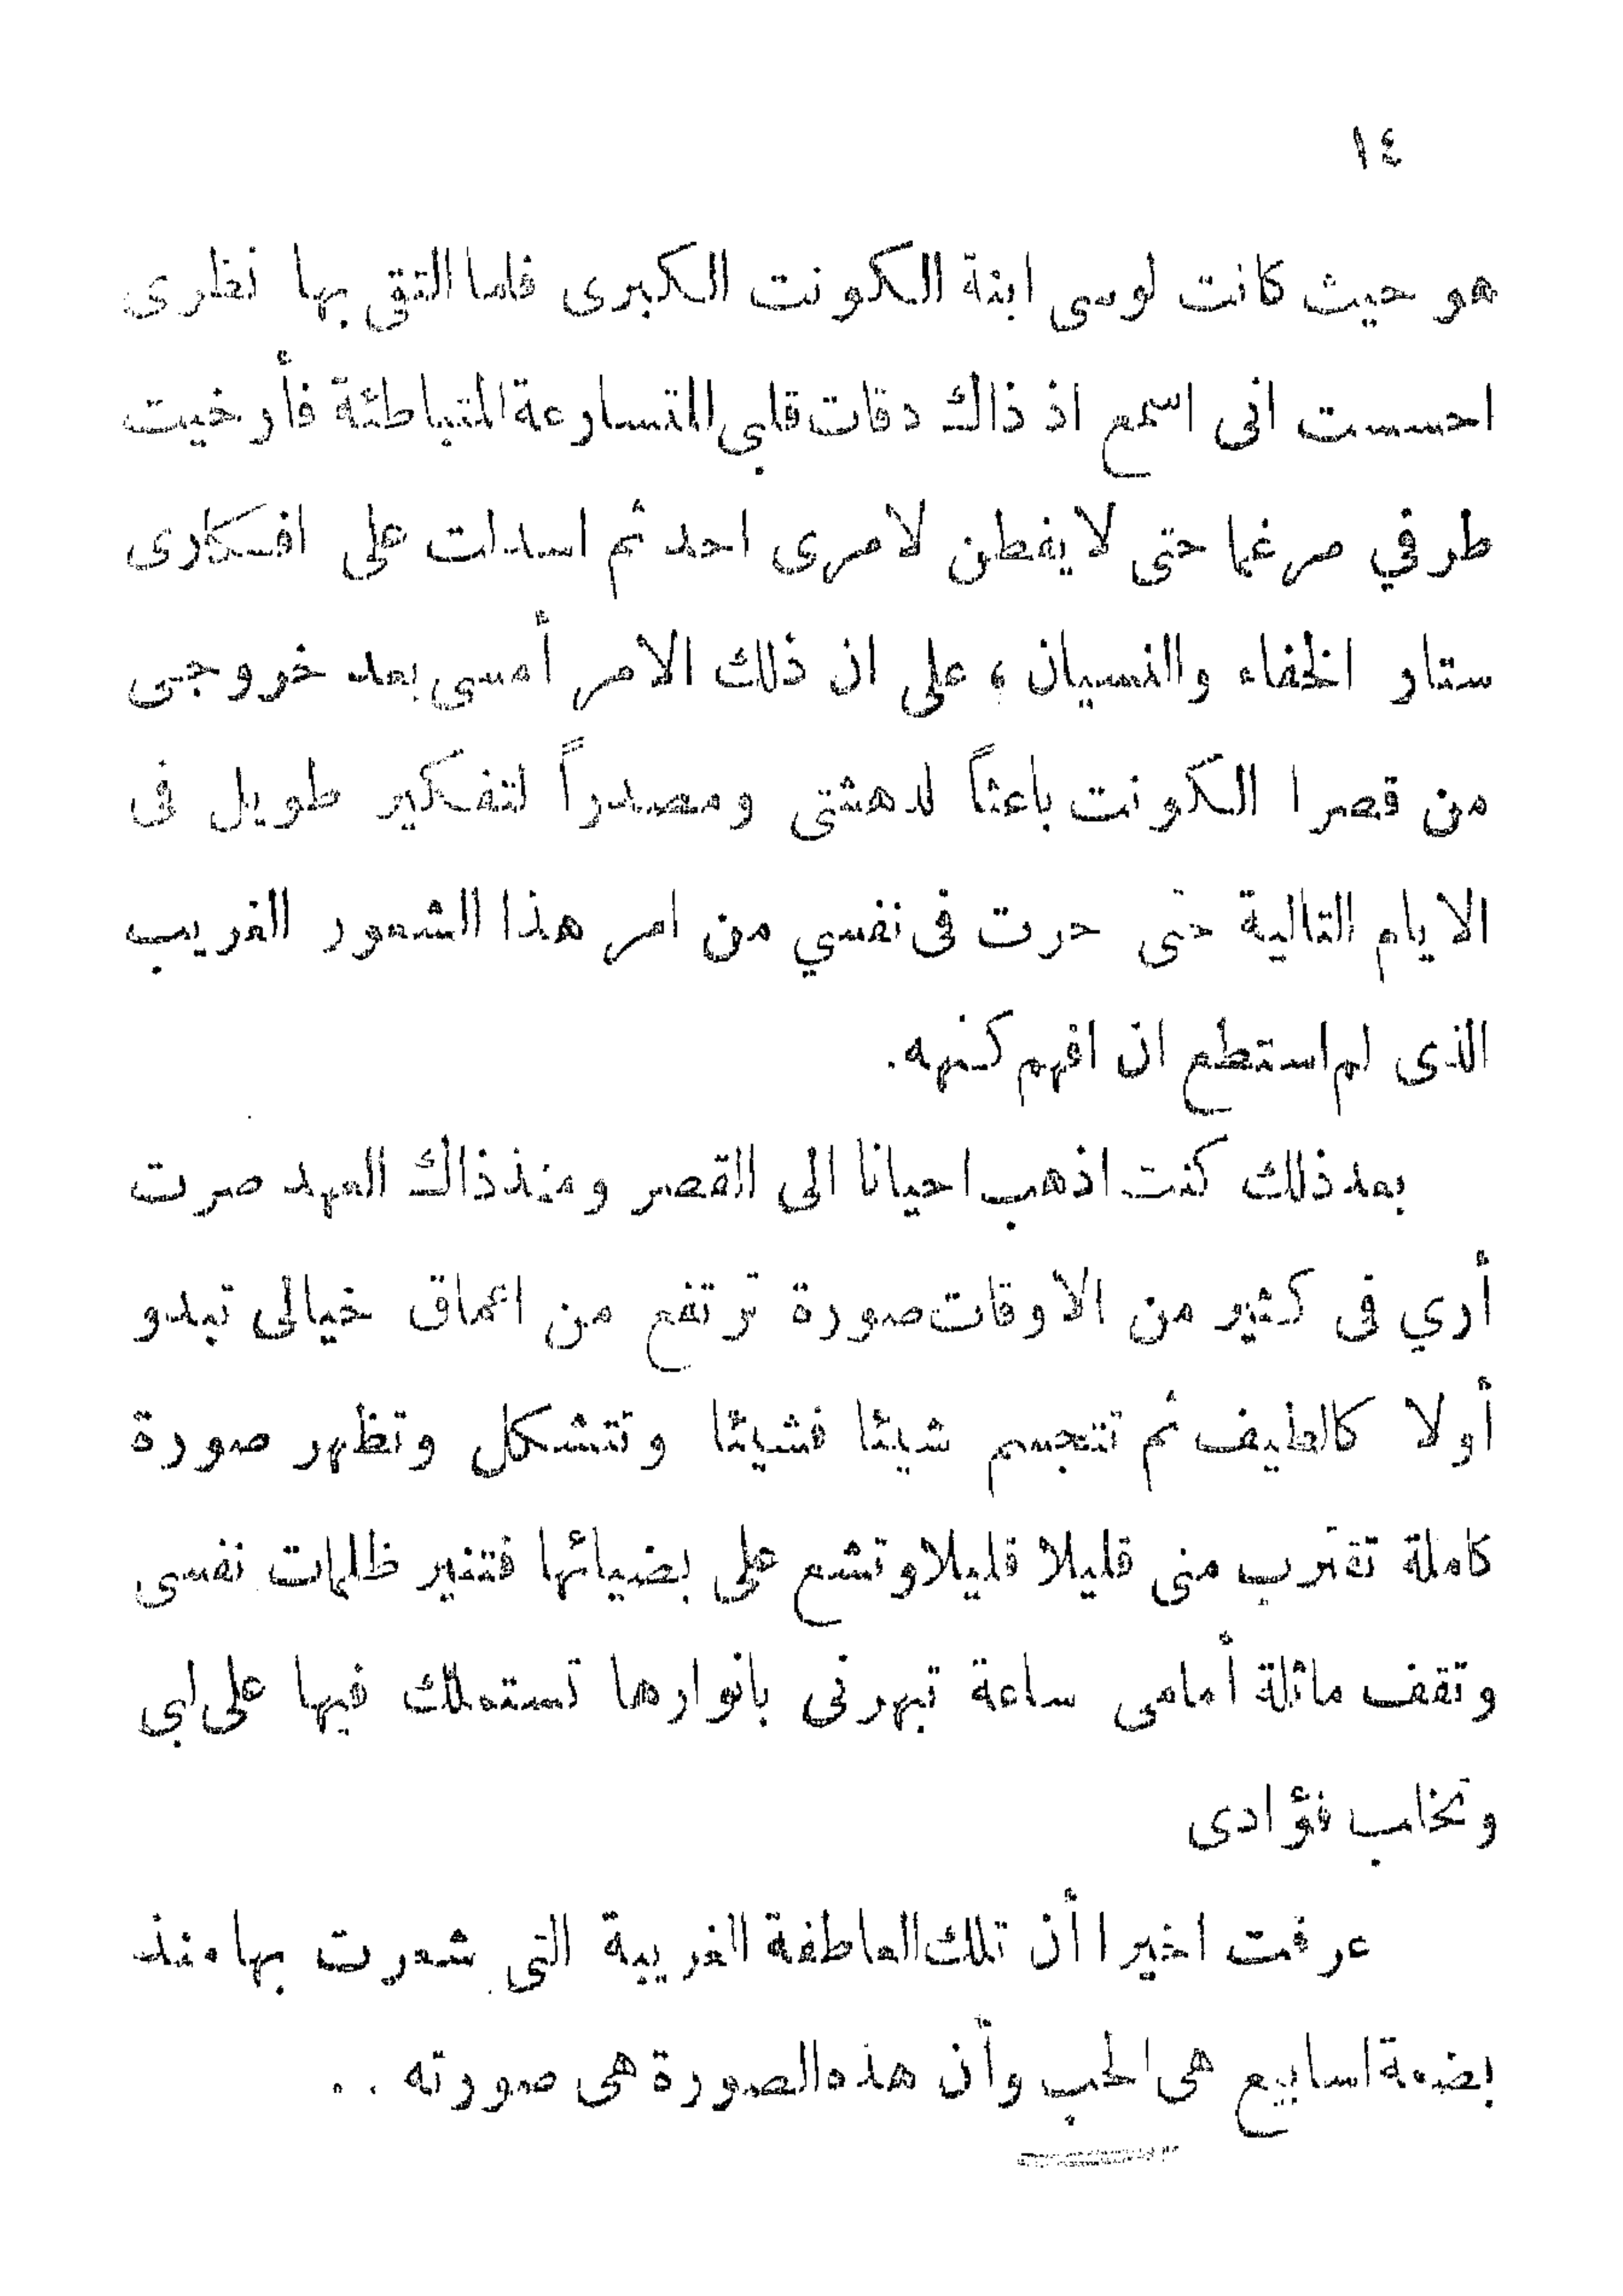 ١٤
هو حيث كانت لوسى ابنة الكونت الكبرى فلما التقى بها نظرى
احسست انى اسمع اذ ذاك دقات قلبي المتسارعة المتباطئة فأرخيت
طرفي مرغما حتى لا يفطن لامرى احد ثم اسدلت على افكارى
ستار الخفاء والنسيان ، على ان ذلك الامر أمسى بعد خروجى
من قصرا الكونت باعثاً لدهشتى ومصدراً لتفكير طويل فى
الايام التالية حتى حرت فى نفسي من امر هذا الشعور الغريب
الذى لم استطع ان افهم كنهه.
بعد ذلك كنت اذهب احيانا الى القصر ومنذ ذاك العهد صرت
أري فى كثير من الاوقات صورة ترتفع من اعماق خيالى تبدو
أولا كالطيف ثم تتجسم شيئا فشيئا وتتشكل وتظهر صورة
كاملة تقترب منى قليلا قليلا وتشع على بضيائها فتنير ظلمات نفسى
وتقف ماثلة أمامى ساعة تبهرنى بانوارها تستملك فيها على لبي
وتخلب فؤادى
عرفت اخيرا أن تلك العاطفة الغريبة التى شعرت بها منذ
بضعة اسابيع هى الحب وأن هذه الصورة هى صورته . .